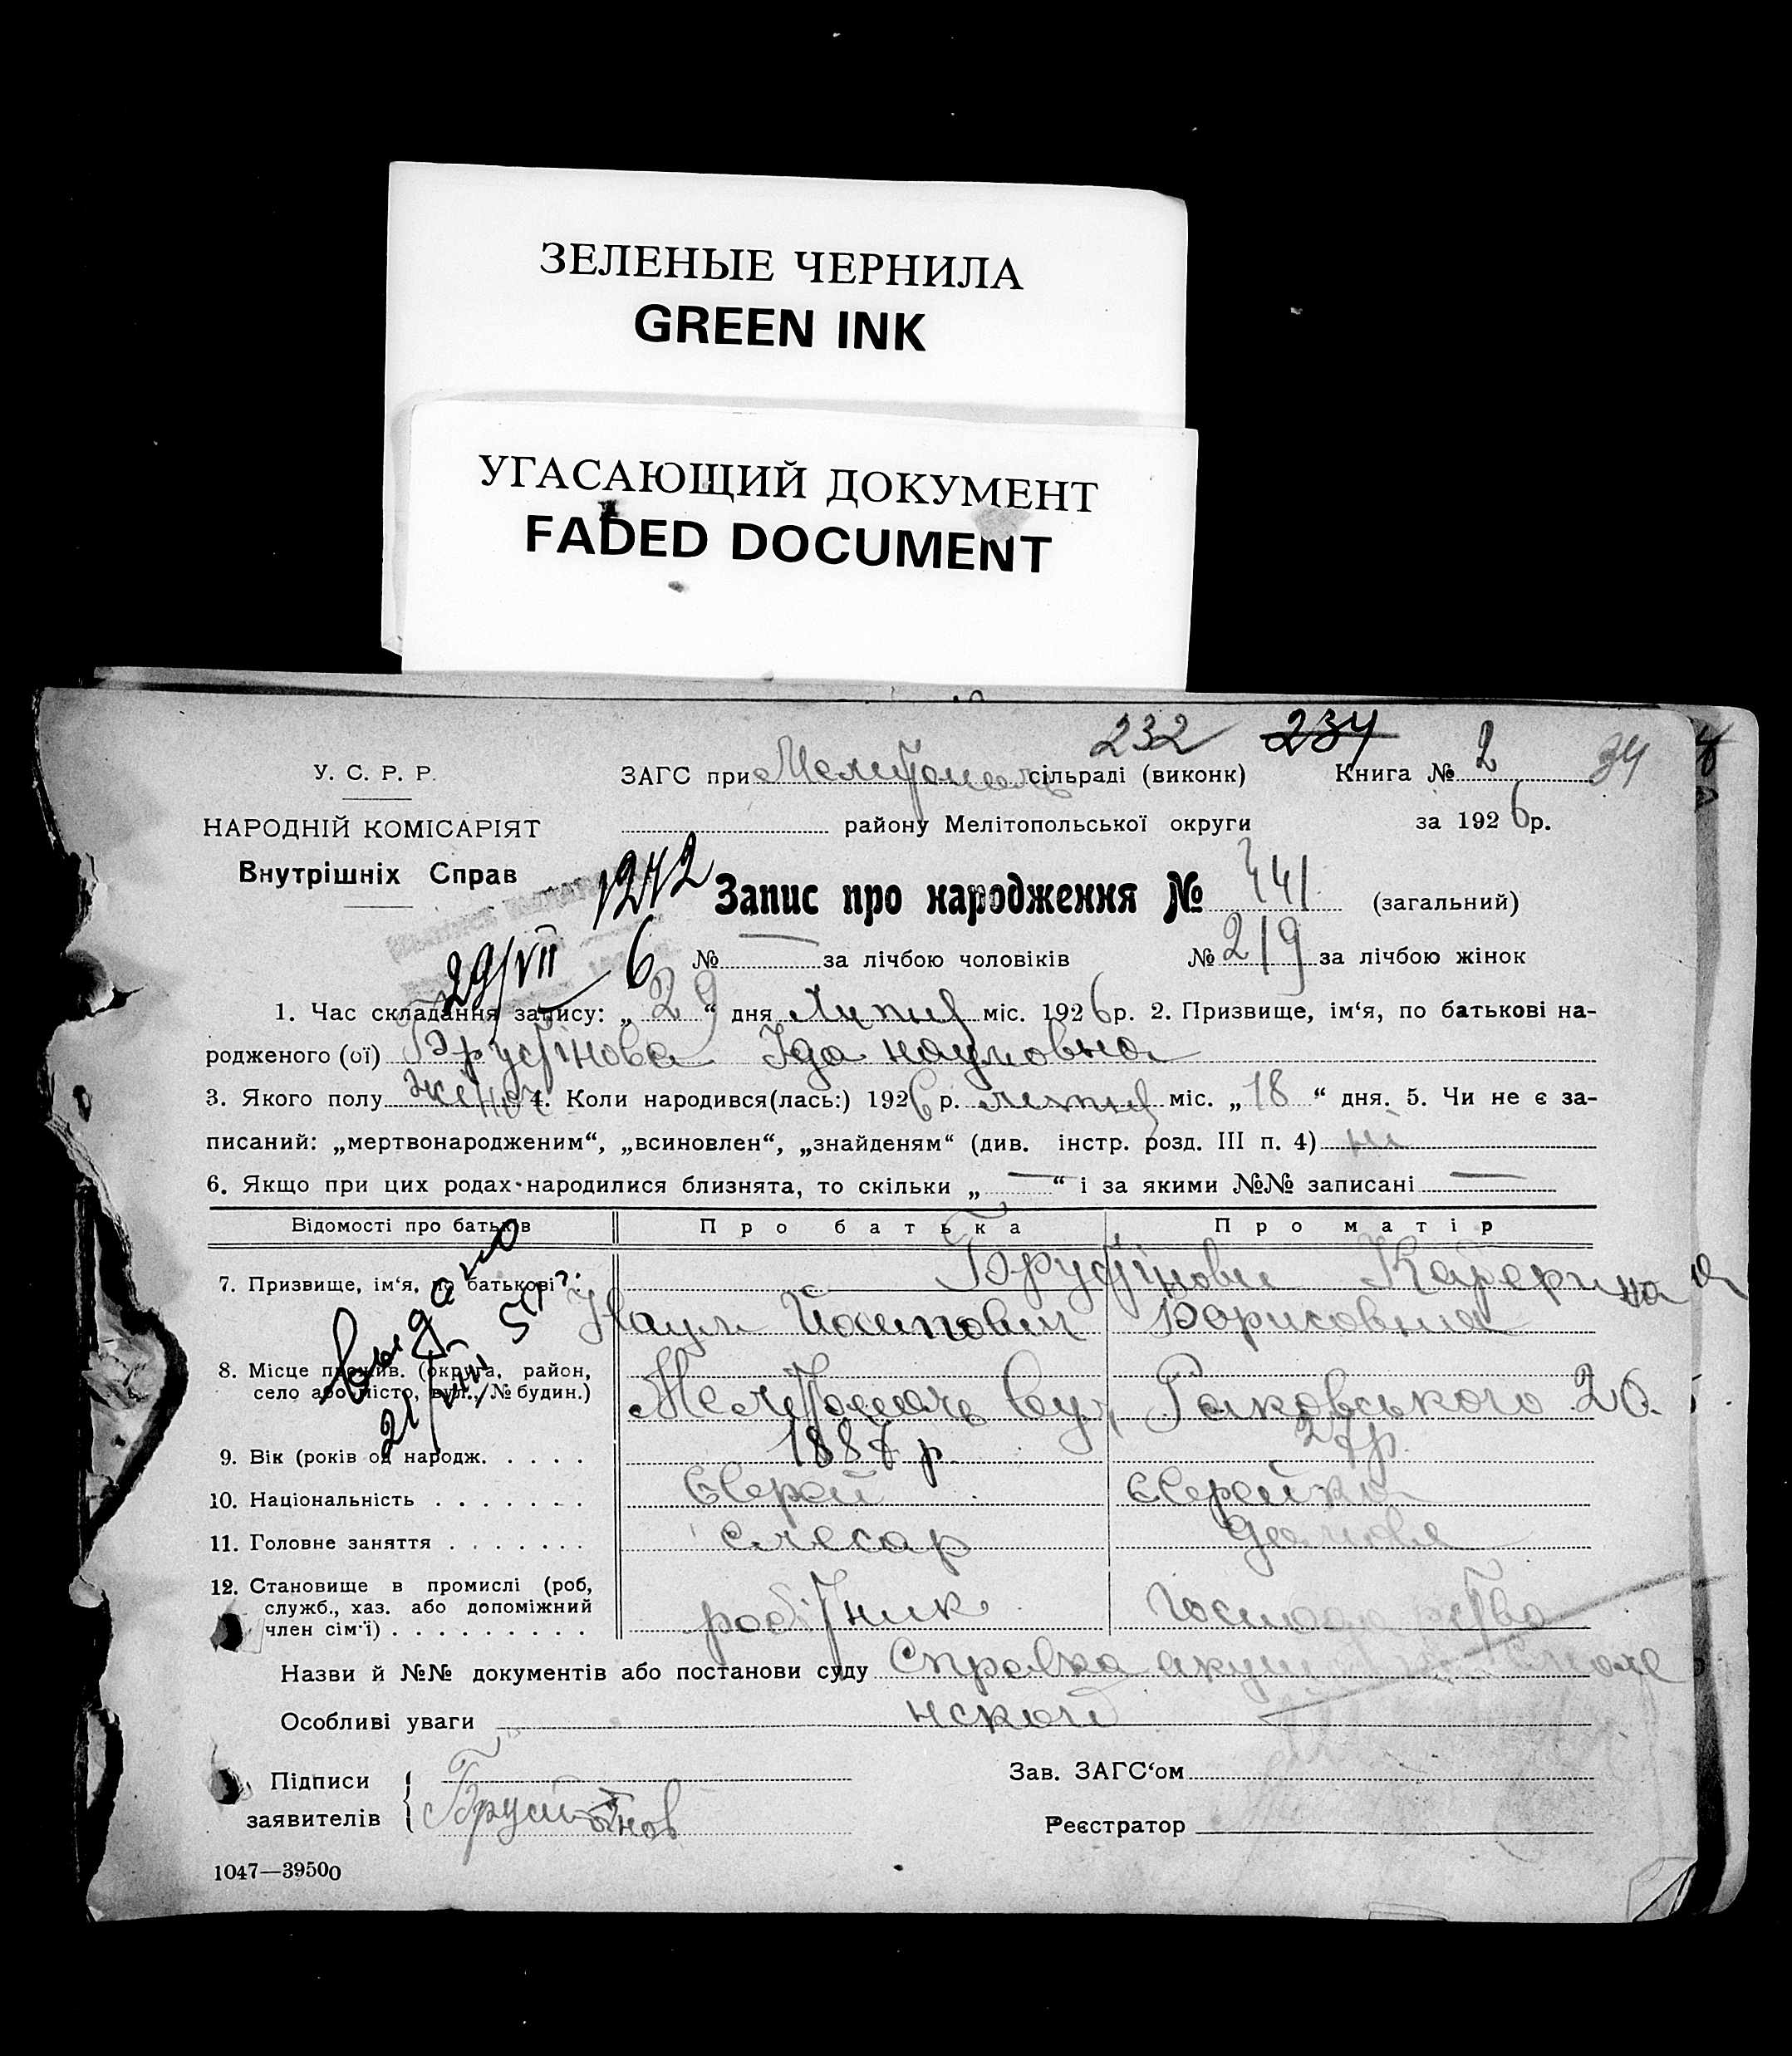 ЗЕЛЕНЫЕ ЧЕРНИЛА
GREEN INK
УГАСАЮЩИЙ ДОКУМЕНТ
FADED DOCUMENT
232 234
У. С. Р. Р. ЗАГС при Мелитополь сільраді (виконк) Книга № 2 34
НАРОДНІЙ КОМІСАРІЯТ району Мелітопольської округи за 1926 р.
Внутрішніх Справ 1242 Запис про народження № 441 (загальний)
29/VII 6 № — за лічбою чоловіків № 219 за лічбою жінок
1. Час складання запису: „29“ дня Липня міс. 1926 р. 2. Призвище, ім‘я, по батькові на-
родженого (ої) Брустінова Іда наумовна
3. Якого полу жіноч 4. Коли народився(лась:) 1926 р. липня міс. „18“ дня. 5. Чи не є за-
писаний: „мертвонародженим“, „всиновлен“, „знайденям“ (див. інстр. розд. III п. 4) ні
6. Якщо при цих родах народилися близнята, то скільки „—“ і за якими №№ записані —
Відомості про батьків Про батька Про матір
7. Призвище, ім‘я, по батькові Брустінови Катерина
Наум Йосипович Борисовна
8. Місце прожив. (округа, район,
село або місто, вул., № будин.) Мелітополь вул, Раковського 20.
Выдано
21/VIII 51 г.
9. Вік (років од народж. . . . . 1887 р. 27 р.
10. Національність . . . . . . . Єврей Єврейка
11. Головне заняття . . . . . . . слесар домове
12. Становище в промислі (роб,
служб., хаз. або допоміжний
член сім‘ї) . . . . . . . . . робітник господарство
Назви й №№ документів або постанови суду Справка акуш
Особливі уваги нской
Підписи Зав. ЗАГС‘ом
заявителів Реєстратор
1047—39500